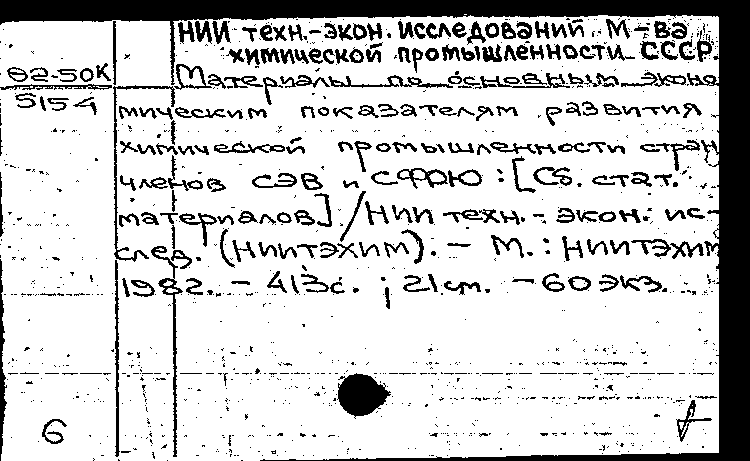 НИИ техн.-экон. исследований М-ва
химической промышленности СССР.
82-50К
Материалы по основным эконо
5154
мическим показателям развития
химической промышленности стран
членов СЭВ и СФРЮ : [Сб. стат.
материалов] / НИИ техн.- экон. ис-
след. (НИИТЭХИМ). – М. : НИИТЭХИМ
1982. – 413с. ; 21 см. – 60 экз.
6